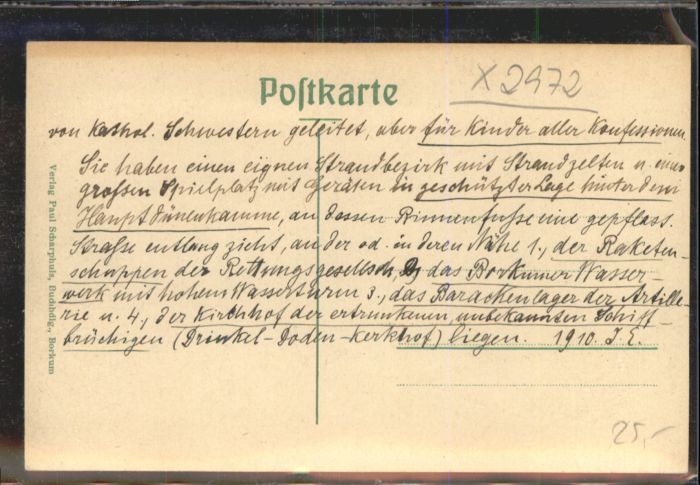 Postkarte
X 2972
von kathol. Schwestern geleitet, aber für Kinder aller Konfessionen.
Sie haben einen eignen Strandbezirk mit Strandzelten u. einen
großen Spielplatz mit Geräten in geschützter Lage hinter dem
Hauptdünenkamme, an dessen Binnenfuße eine gepflast.
Straße entlang zieht, an der od. in deren Nähe 1., der Raketen-
schuppen der Rettungsgesellsch. 2., das Borkumer Wasser-
werk mit hohem Wasserturm 3., das Barackenlager der Artille-
rie u. 4., der Kirchhof der ertrunkenen, unbekannten Schiff-
brüchigen (Drinkel-Doden-Kerkhof) liegen. 1910. J. E.
Verlag Paul Scharphuis, Buchhdlg., Borkum
25,-